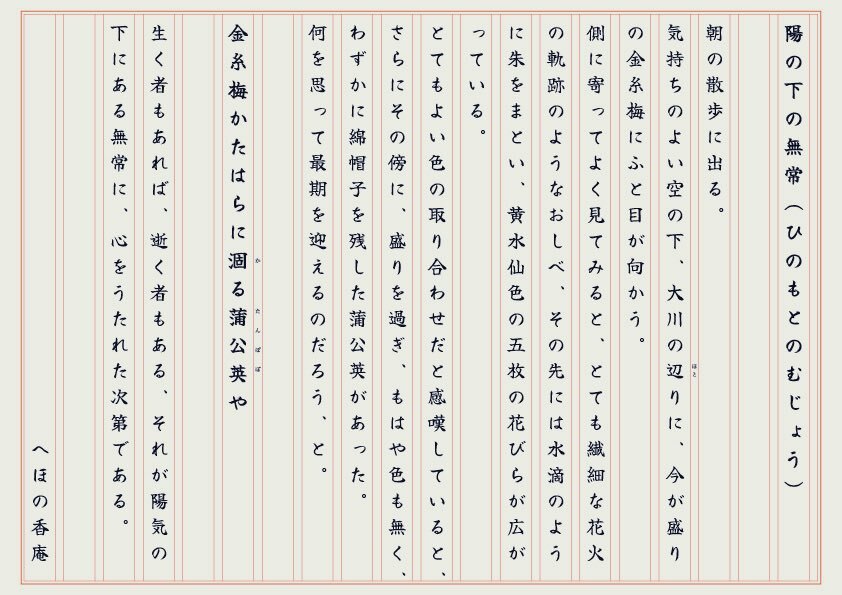 陽の下の無常（ひのもとのむじょう）
朝の散歩に出る。
気持ちのよい空の下、大川の辺りに、今が盛り
ほと
の金糸梅にふと目が向かう。
側に寄ってよく見てみると、とても繊細な花火
の軌跡のようなおしべ、その先には水滴のよう
に朱をまとい、黄水仙色の五枚の花びらが広が
っている。
とてもよい色の取り合わせだと感嘆していると、
さらにその傍に、盛りを過ぎ、もはや色も無く、
わずかに綿帽子を残した蒲公英があった。
何を思って最期を迎えるのだろう、と。
金糸梅かたはらに涸る蒲公英や
か
たんぽぽ
生く者もあれば、逝く者もある、それが陽気の
下にある無常に、心をうたれた次第である。
へほの香庵